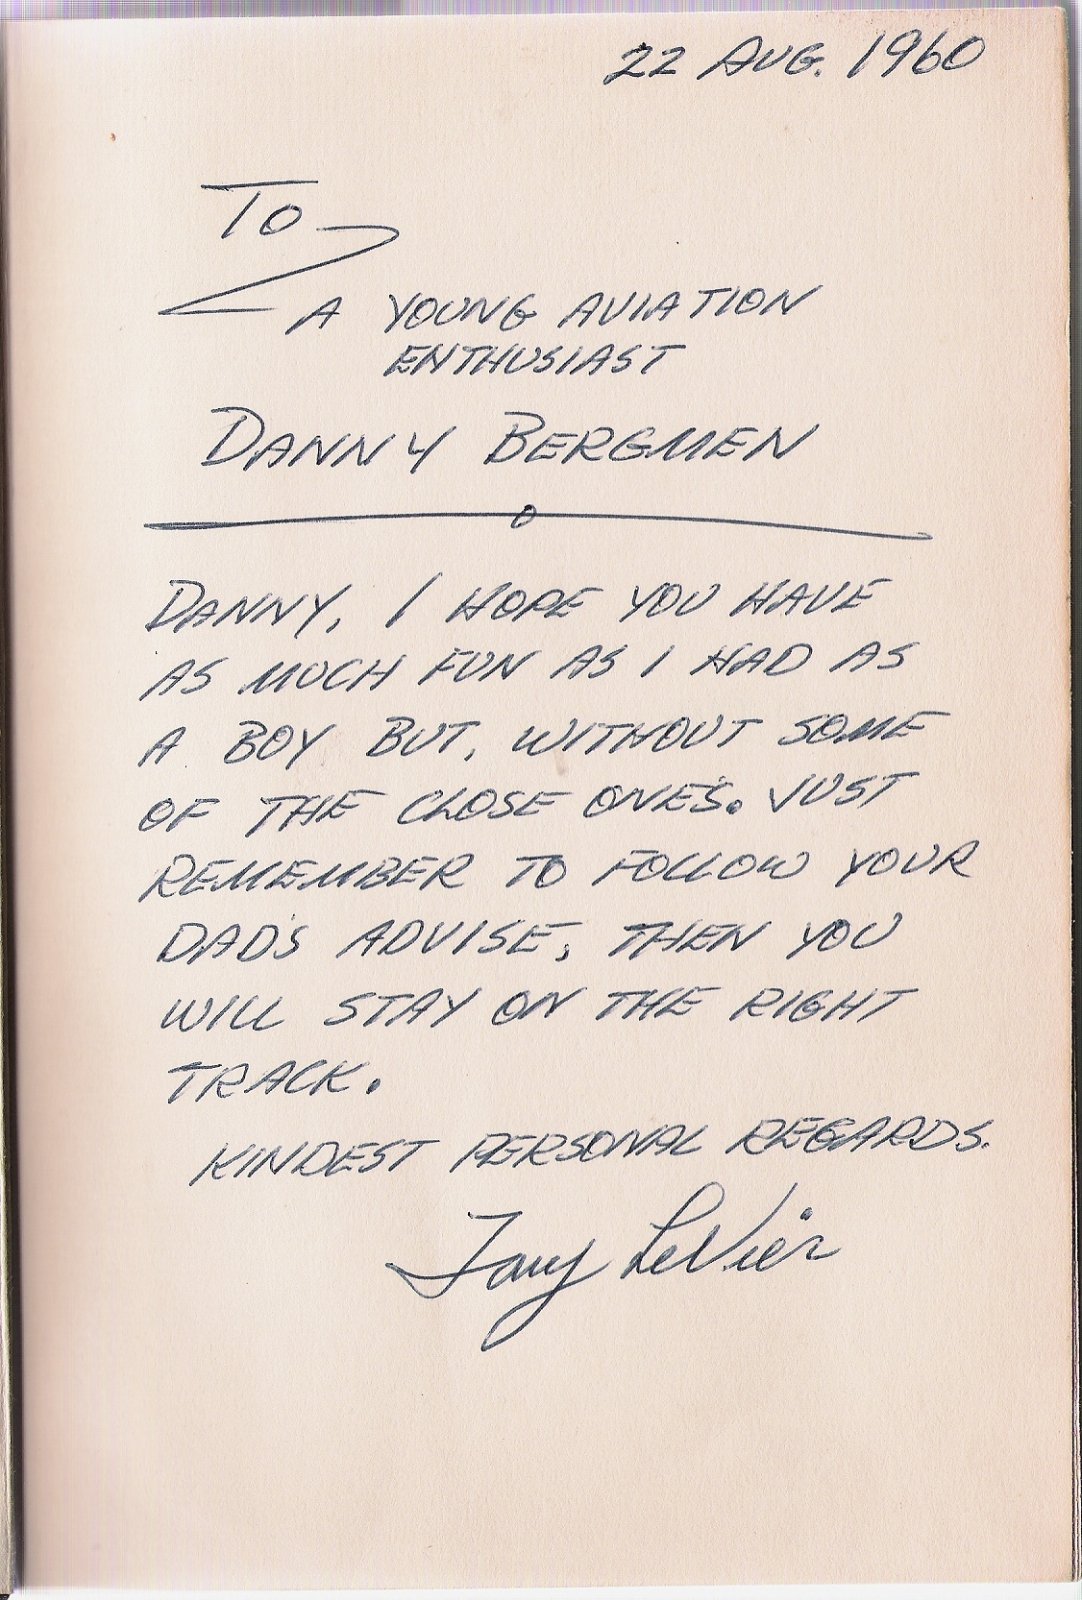 22 AUG. 1960
TO
A YOUNG AVIATION
ENTHUSIAST
DANNY BERGMEN
DANNY, I HOPE YOU HAVE
AS MUCH FUN AS I HAD AS
A BOY BUT, WITHOUT SOME
OF THE CLOSE ONE'S. JUST
REMEMBER TO FOLLOW YOUR
DAD'S ADVISE, THEN YOU
WILL STAY ON THE RIGHT
TRACK.
KINDEST PERSONAL REGARDS.
Tony LeVier